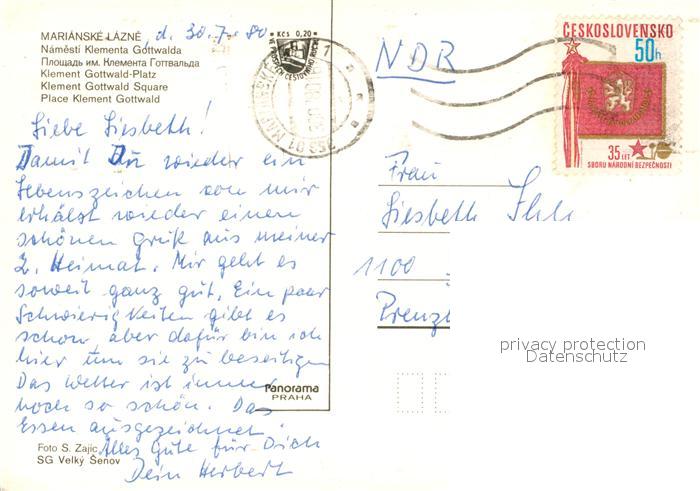 MARIÁNSKÉ LÁZNĚ, d. 30.7.80
Náměstí Klementa Gottwalda
Площадь им. Клемента Готтвальда
Klement Gottwald-Platz
Klement Gottwald Square
Place Klement Gottwald
Kčs 0,20
ČESKOSLOVENSKO
50h
35 LET
SBORU NÁRODNÍ BEZPEČNOSTI
NDR
Liebe Liesbeth!
Damit Du wieder ein
Lebenszeichen von mir
erhälst wieder einen
schönen Gruß aus meiner
2. Heimat. Mir geht es
soweit ganz gut. Ein paar
Schwierigkeiten gibt es
schon, aber dafür bin ich
hier um sie zu beseitigen
Das Wetter ist immer
noch so schön. Das
Essen ausgezeichnet.
Alles Gute für Dich
Dein Herbert
Frau
Liesbeth
1100
Prenzl
privacy protection
Datenschutz
Panorama
PRAHA
Foto S. Zajíc
SG Velký Šenov